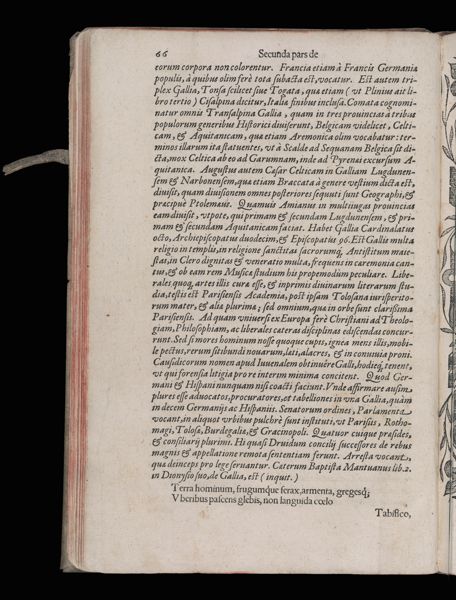 66 Secunda pars de
eorum corpora non colorentur. Francia etiam à Francis Germania
populis, à quibus olim ferè tota subacta est, vocatur. Est autem tri-
plex Gallia, Tonsa scilicet siue Togata, quæ etiam (vt Plinius ait li-
bro tertio) Cisalpina dicitur, Italiæ finibus inclusa. Comata cognomi-
natur omnis Transalpina Gallia, quam in tres prouincias à tribus
populorum generibus Historici diuiserunt, Belgicam videlicet, Celti-
cam, & Aquitanicam, quæ etiam Aremonica olim vocabatur: ter-
minos illarum ita statuentes, vt à Scalde ad Sequanam Belgica sit di-
cta, mox Celtica ab eo ad Garumnam, inde ad Pyrenæi excursum A-
quitanica. Augustus autem Cæsar Celticam in Galliam Lugdunen-
sem & Narbonensem, quæ etiam Braccata à genere vestium dicta est,
diuisit, quam diuisionem omnes posteriores sequuti sunt Geographi, &
præcipuè Ptolemæus. Quamuis Amianus in multiiugas prouincias
eam diuisit, vtpote, qui primam & secundam Lugdunensem, & pri-
mam & secundam Aquitanicam faciat. Habet Gallia Cardinalatus
octo, Archiepiscopatus duodecim, & Episcopatus 96. Est Gallis multa
religio in templis, in religione sanctitas sacrorumq́, Antistitum maie-
stas, in Clero dignitas & veneratio multa, frequens in cæremonia can-
tus, & ob eam rem Musicæ studium his propemodum peculiare. Libe-
rales quoq, artes illis curæ esse, & inprimis diuinarum literarum stu-
dia, testis est Parisiensis Academia, post ipsam Tolosana iurisperito-
rum mater, & alia plurima; sed omnium, quæ in orbe sunt clarissima
Parisiensis. Ad quam vniuersi ex Europa ferè Christiani ad Theolo-
giam, Philosophiam, ac liberales cæteras disciplinas ediscendas concur-
runt. Sed si mores hominum nosse quoque cupis, ignea mens illis, mobi-
le pectus, rerum sitibundi nouarum, læti, alacres, & in conuiuia proni.
Causidicorum nomen apud Iuuenalem obtinuêre Galli, hodieq́, tenent,
vt qui forensia litigia pro re interim minima concitent. Quod Ger-
mani & Hispani nunquam nisi coacti faciunt. Vnde affirmare ausim,
plures esse aduocatos, procuratores, et tabelliones in vna Gallia, quàm
in decem Germanijs ac Hispaniis. Senatorum ordines, Parlamenta
vocant, in aliquot vrbibus pulchrè sunt instituti, vt Parisiis, Rotho-
magi, Tolosæ, Burdegaliæ, & Gracinopoli. Quatuor cuique præsides,
& consiliarij plurimi. Hi quasi Druidum concilij successores de rebus
magnis & appellatione remota sententiam ferunt. Arresta vocant,
quæ deinceps pro lege seruantur. Cæterum Baptista Mantuanus lib. 2.
in Dionysio suo, de Gallia, est (inquit.)
Terra hominum, frugumque ferax, armenta, gregesq́;
Vberibus pascens glebis, non languida cœlo
Tabifico,